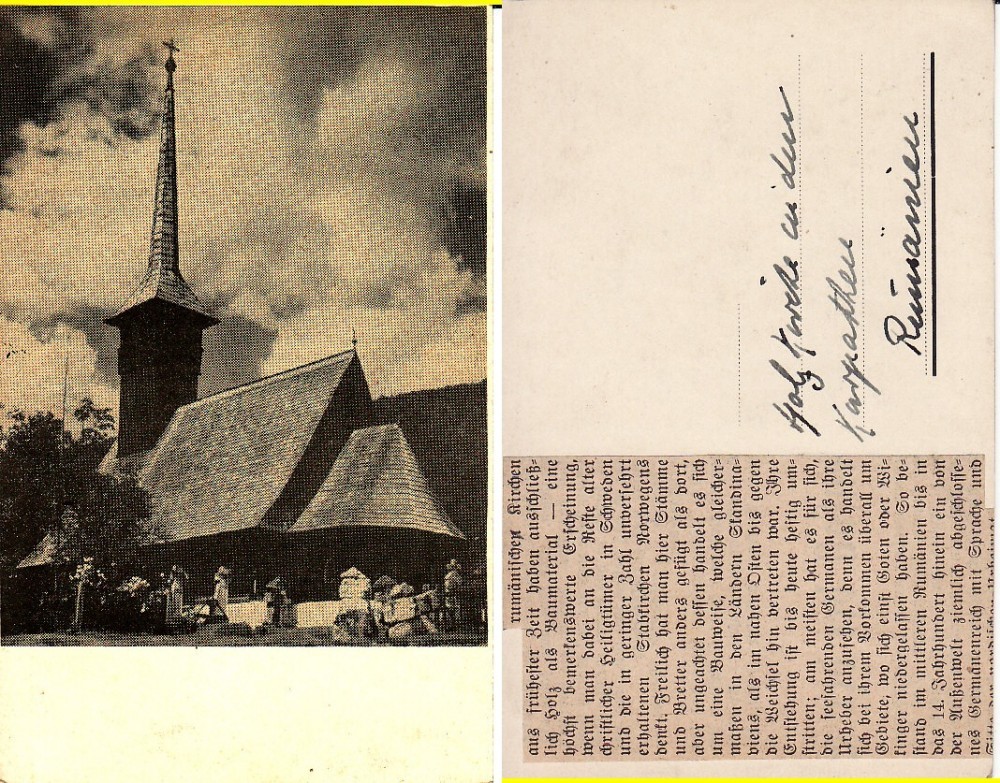 rumänischen Kirchen
aus frühester Zeit haben ausschließ=
lich Holz als Baumaterial — eine
höchst bemerkenswerte Erscheinung,
wenn man dabei an die Reste alter
christlicher Heiligtümer in Schweden
und die in geringer Zahl unversehrt
erhaltenen Stabkirchen Norwegens
denkt. Freilich hat man hier Stämme
und Bretter anders gefügt als dort,
aber ungeachtet dessen handelt es sich
um eine Bauweise, welche gleicher=
maßen in den Ländern Skandina=
viens, als im nahen Osten bis gegen
die Weichsel hin vertreten war. Ihre
Entstehung ist bis heute heftig um=
stritten; am meisten hat es für sich,
die seefahrenden Germanen als ihre
Urheber anzusehen, denn es handelt
sich bei ihrem Vorkommen überall um
Gebiete, wo sich einst Goten oder Wi=
kinger niedergelassen haben. So be=
stand im mittleren Rumänien bis in
das 14. Jahrhundert hinein ein von
der Außenwelt ziemlich abgeschlosse=
nes Germanenreich mit Sprache und
Holz Kirche in den
Karpathen
Rumänien